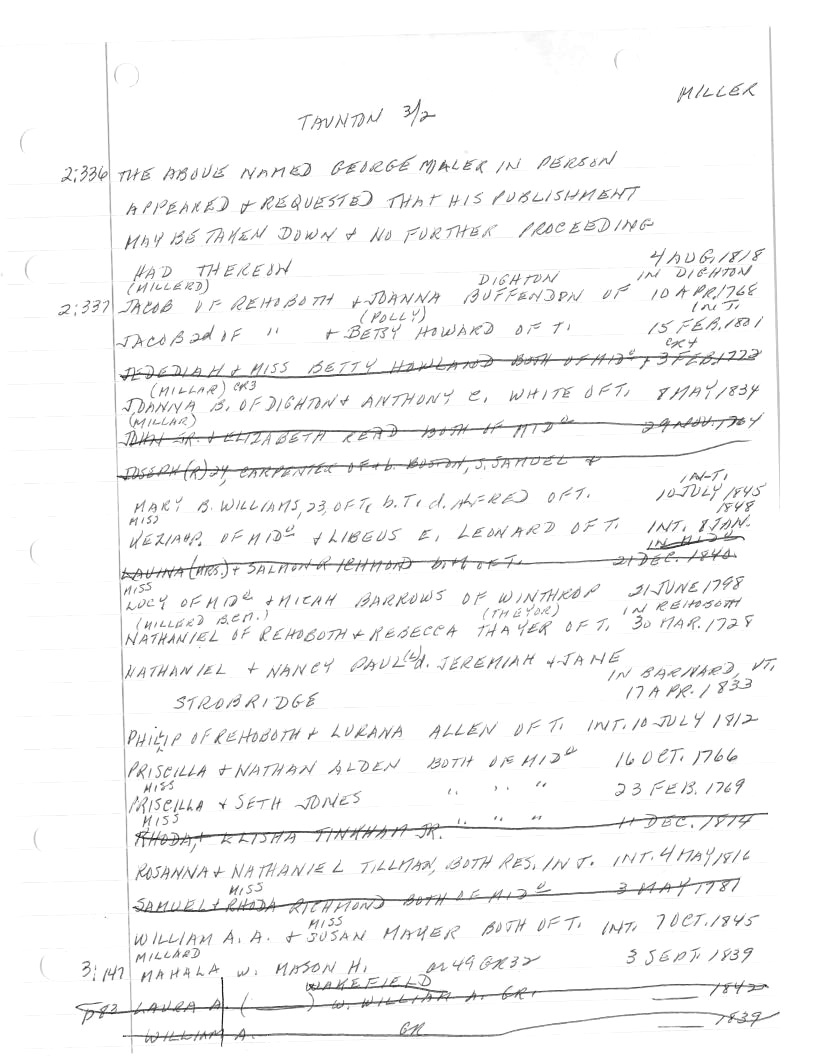 MILLER
TAUNTON 3/2
2:336 THE ABOVE NAMED GEORGE MILLER IN PERSON
APPEARED & REQUESTED THAT HIS PUBLISHMENT
MAY BE TAKEN DOWN & NO FURTHER PROCEEDING
HAD THEREON 4 AUG. 1818
(MILLERD) DIGHTON IN DIGHTON
2:337 JACOB OF REHOBOTH & JOANNA BUFFENDON OF 10 APR. 1768
(POLLY) IN T.
JACOB 2d OF " & BETSY HOWARD OF T. 15 FEB. 1801
CR4
JEDEDIAH & MISS BETTY HOWLAND BOTH OF MIDo, 3 FEB. 1772
(MILLAR) CR3
JOANNA B. OF DIGHTON & ANTHONY C. WHITE OF T. 8 MAY 1834
(MILLAR)
JOHN JR. & ELIZABETH READ BOTH OF MIDo 29 NOV. 1764
JOSEPH (R) 24, CARPENTER OF & b. BOSTON, S. SAMUEL &
IN T.
MARY B. WILLIAMS, 23, OF T., b. T. d. ALFRED OF T. 10 JULY 1845
MISS 1848
KEZIAH P. OF MIDo & LIBEUS E. LEONARD OF T. INT. 8 JAN.
IN MIDo
LAVINA (MRS.) & SALMON RICHMOND both OF T. 21 DEC. 1840
MISS
LUCY OF MIDo & MICAH BARROWS OF WINTHROP 21 JUNE 1798
(MILLERD B.C.M.) (THEYOR) IN REHOBOTH
NATHANIEL OF REHOBOTH & REBECCA THAYER OF T. 30 MAR. 1728
NATHANIEL & NANCY PAUL(L) d. JEREMIAH & JANE
IN BARNARD, VT.
STROBRIDGE 17 APR. 1833
PHILIP OF REHOBOTH & LURANA ALLEN OF T. INT. 10 JULY 1812
PRISCILLA & NATHAN ALDEN BOTH OF MIDo 16 OCT. 1766
MISS
PRISCILLA & SETH JONES " " " 23 FEB. 1769
MISS
RHODA, & ELISHA TINKHAM JR. " " " 11 DEC. 1814
ROSANNA & NATHANIEL TILLMAN, BOTH RES. IN T. INT. 4 MAY 1816
MISS
SAMUEL & RHODA RICHMOND BOTH OF MIDo 3 MAY 1781
MISS
WILLIAM A. A. & SUSAN MAYER BOTH OF T. INT. 7 OCT. 1845
MILLARD
3:147 MAHALA W. MASON H. or 49 GR32 3 SEPT. 1839
WAKEFIELD
p83 LAURA A. ( ) W. WILLIAM A. GR. 1842
WILLIAM A. GR 1839